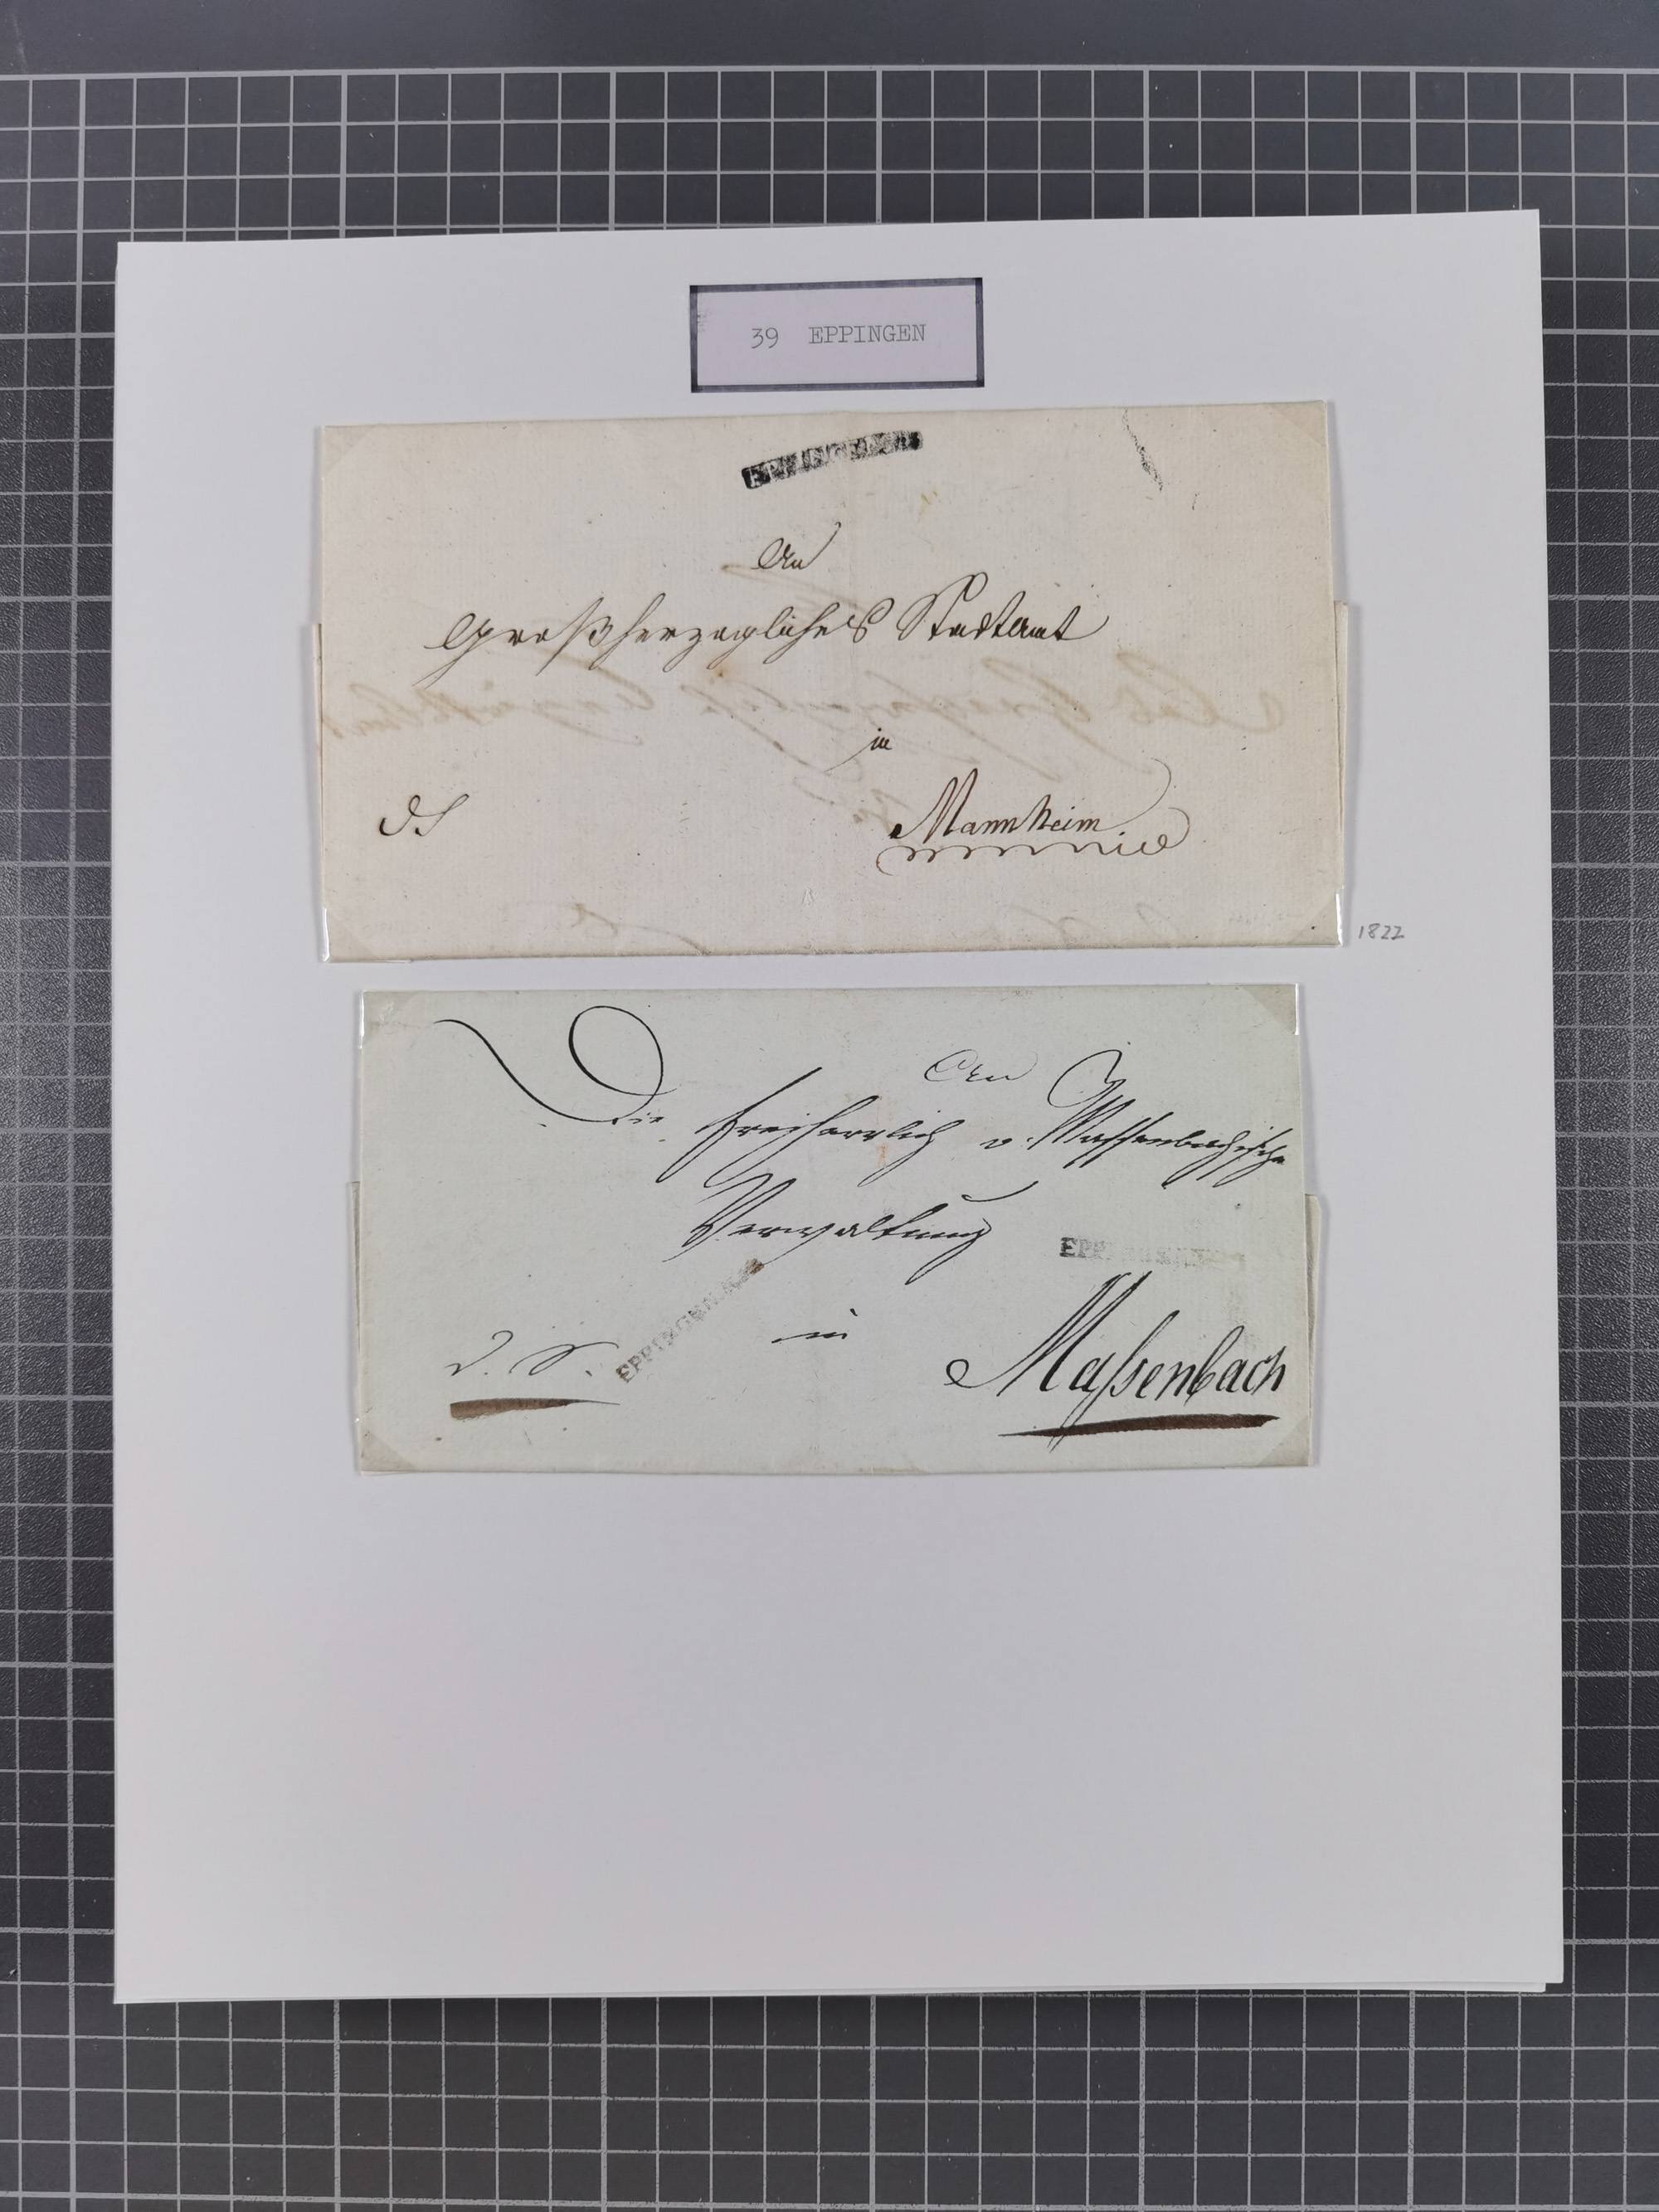 39 EPPINGEN
EPPINGEN
An
Großherzogliches Stadtamt
in
DS
Mannheim
1822
An
Die Freiherrlich v. Massenbachische
Verwaltung
EPPINGEN
D. S.
in
Maſsenbach